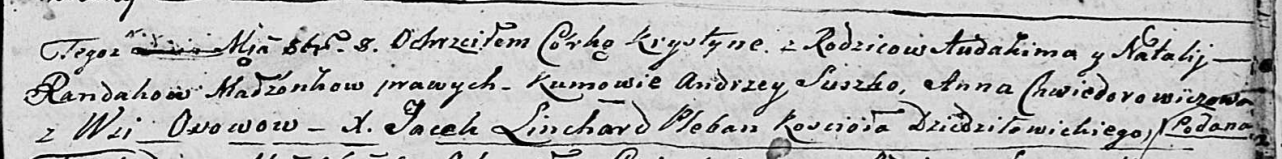 Tegoz Mją str. 8. Ochrzciłem Córkę Krystynę z Rodzicow Audakima y Natalij
Randakow Małżonkow prawych. Kumowie Andrzey Suszko, Anna Chwiedorowiczowa
z Wsi Osowow - X. Jacek Linchard Pleban Koscioła Dziedziłowickiego, Podana